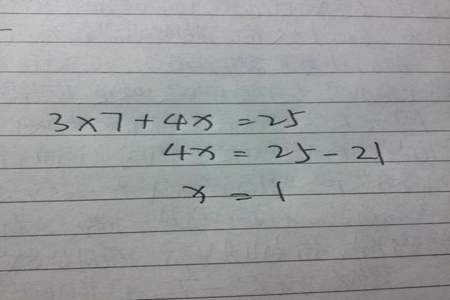 3×7+4x=25
4x=25-21
x=1